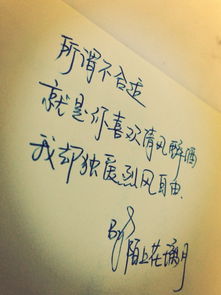 所谓不合适
就是你喜欢清风醉酒
我却独爱烈风自由.
By 陌上花满月